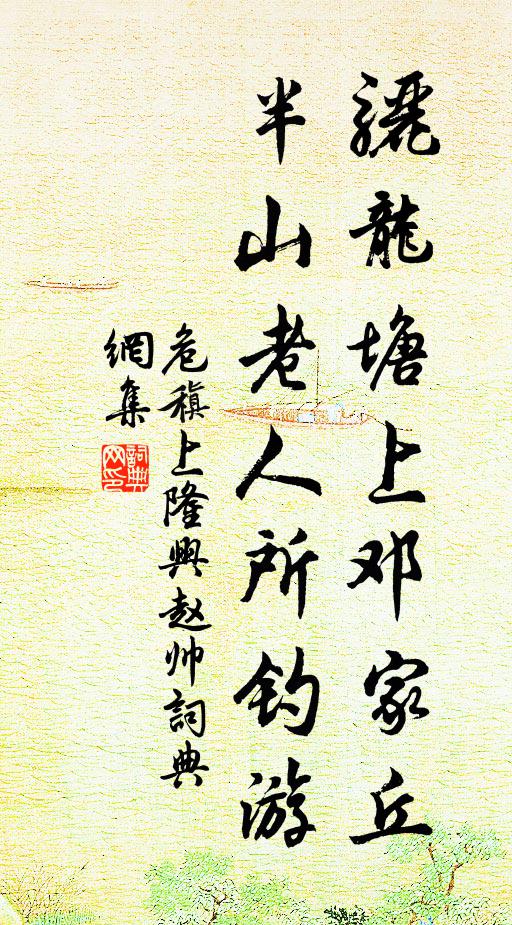 骊龍塘上邓家丘
半山老人所钓游
危稹上隆興赵帅詞典
網集
詞典
网印